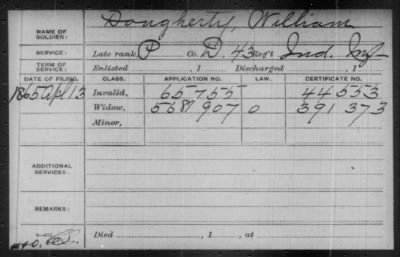 NAME OF SOLDIER: Dougherty, William
SERVICE: Late rank, P Co. D, 43 Reg't Ind. Inf
TERM OF SERVICE: Enlisted , 1 Discharged , 1
DATE OF FILING. CLASS. APPLICATION NO. LAW. CERTIFICATE NO.
1865 Apl 13 Invalid, 65755 44553
Widow, 568907 0 391373
Minor,
ADDITIONAL SERVICES:
REMARKS:
Died , 1 , at